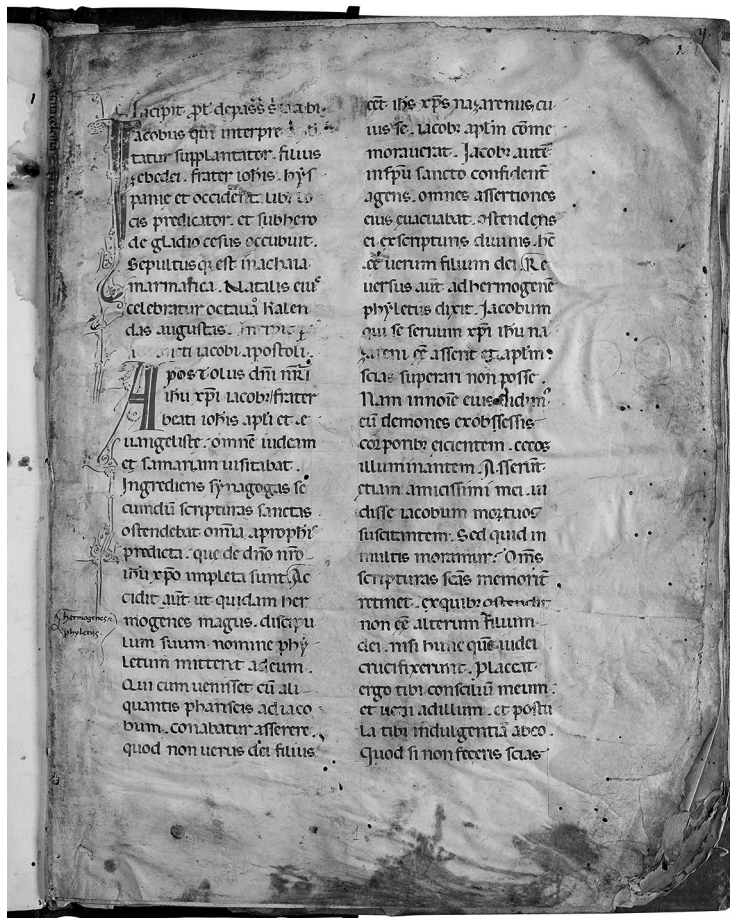 1
Incipit. pl'. de pass s.
Iacobus qui interpre
tatur supplantator. filius
zebedei. frater ioh̅is. hys
panie et occident. lib. lo
cis predicator. et sub hero
de gladio cesus occubuit.
Sepultusq; est in achaia
marmarica. Natalis eius
celebratur octauo kalen
das augustas. Incipit
iacobi apostoli.
Apostolus dn̅i nr̅i
ih̅u xp̅i iacob; frater
beati ioh̅is ap̅li et e
uangeliste. omne̅ iudeam
et samariam uisitabat.
Ingrediens synagogas se
cundu̅ scripturas sanctas
ostendebat om̅ia. a prophis
predicta. que de dn̅o nr̅o
ih̅u xp̅o impleta sunt. Ac
cidit aut̅. ut quidam her
mogenes magus. discipu
lum suum nomine phy
letum mitteret ad eum.
Qui cum uenisset cu̅ ali
quantis phariseis ad iaco
bum. conabatur asserere.
quod non uerus dei filius
hermogenes
phyletus.
eet̅ ih̅s xp̅s nazarenus. cu
ius se. iacob; ap̅lm co̅me
morauerat. Iacob; aute̅
in sp̅u sancto confident̅
agens. omnes assertiones
eius euacuabat. ostendens
ei ex scripturis diuinis. hc̅
ee̅ uerum filium dei. Re
uersus aut̅ ad hermogene̅
phyletus dixit. Iacobum
qui se seruum xp̅i ih̅u na
zareni ee̅ asserit et ap̅lm.
scias superari non posse.
Nam in no̅ie eius uidim'
eu̅ demones ex obssessis
corporib; eicientem. cecos
illuminantem. Asserunt̅
etiam amicissimi mei. ui
disse iacobum mortuos
suscitantem. Sed quid in
multis moramur. Om̅s
scripturas sc̅as memorit̅
retinet. ex quib; ostendit
non ee̅ alterum filium
dei. nisi hunc que̅ iudei
crucifixerunt. Placeat
ergo tibi consciliu̅ meum.
et ueni ad illum. et postu
la tibi indulgentia̅ ab eo.
Quod si non feceris scias